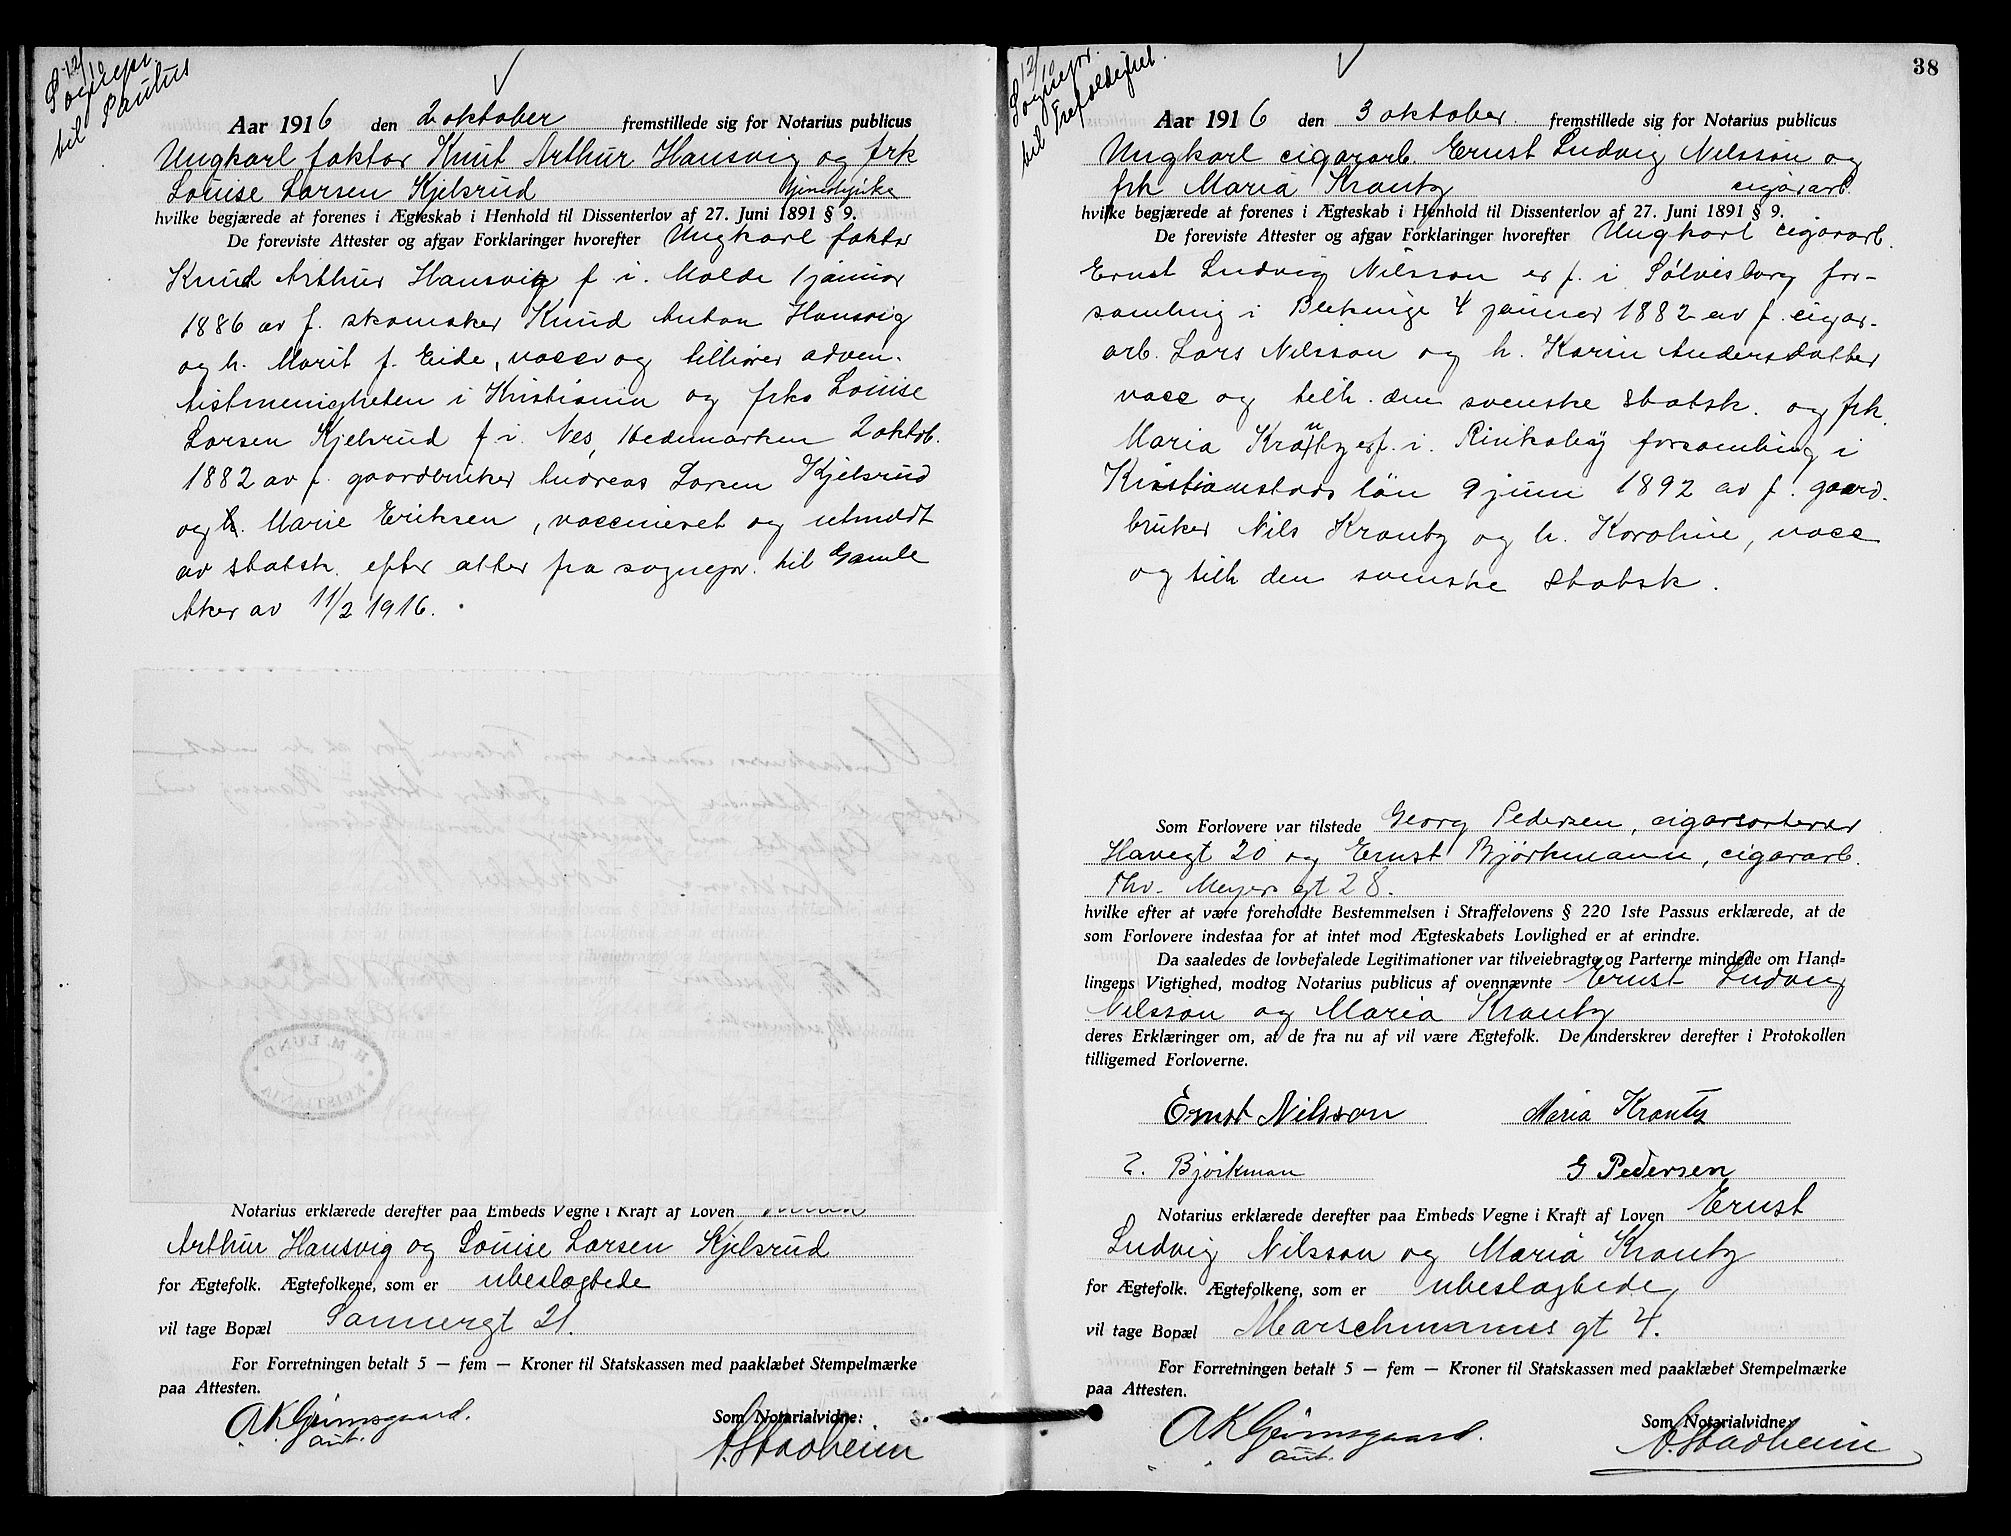 12/10
Sognepr.
til Paulus
Aar 1916 den 2 oktober fremstillede sig for Notarius publicus
Ungkarl faktor Knut Arthur Hansvig og frk
Louise Larsen Kjelsrud tjenestepike
hvilke begjærede at forenes i Ægteskab i Henhold til Dissenterlov af 27. Juni 1891 § 9.
De foreviste Attester og afgav Forklaringer hvorefter Ungkarl faktor
Knud Arthur Hansvig f i. Molde 1 januar
1886 av f. skomaker Knud Anton Hansvig
og h. Marit f. Eide, vacc og tilhører adven-
tistmenigheten i Kristiania og frk Louise
Larsen Kjelsrud f i. Nes, Hedemarken 2 oktob.
1882 av f. gaardbruker Andreas Larsen Kjelsrud
og h. Marie Eriksen, vaccineret og utmeldt
av statsk. efter attest fra sognepr. til Gamle
Aker av 11/2 1916.
H. M. LUND
KRISTIANIA
Notarius erklærede derefter paa Embeds Vegne i Kraft af Loven
Arthur Hansvig og Louise Larsen Kjelsrud
for Ægtefolk. Ægtefolkene, som er ubeslægtede
vil tage Bopæl Sannergt 21.
For Forretningen betalt 5 — fem — Kroner til Statskassen med paaklæbet Stempelmærke
paa Attesten.
A K Grimsgaard.
aut.
Som Notarialvidne:
A. Stadheim
38
12/10
Sognepr.
til Trefoldighet.
Aar 1916 den 3 oktober. fremstillede sig for Notarius publicus
Ungkarl cigararb. Ernst Ludvig Nilsson og
frk Maria Krantz cigararb.
hvilke begjærede at forenes i Ægteskab i Henhold til Dissenterlov af 27. Juni 1891 § 9.
De foreviste Attester og afgav Forklaringer hvorefter Ungkarl cigararb.
Ernst Ludvig Nilsson er f. i Sølvesborg for-
samling i Blekinge 4 januar 1882 av f. cigar-
arb. Lars Nilsson og h. Karin Andersdatter
vacc og tilh. den svenske statsk. og frk.
Maria Krantz er f. i. Rinkaby forsamling i
Kristianstads län 9 juni 1892 av f. gaard.
bruker Nils Krantz og h. Karoline, vacc
og tilh den svenske statsk.
Som Forlovere var tilstede Georg Pedersen, cigarsorterer
Havegt 20 og Ernst Bjørkmann, cigararb.
Thv. Meyers gt 28.
hvilke efter at være foreholdte Bestemmelsen i Straffelovens § 220 1ste Passus erklærede, at de
som Forlovere indestaa for at intet mod Ægteskabets Lovlighed er at erindre.
Da saaledes de lovbefalede Legitimationer var tilveiebragte og Parterne mindede om Hand-
lingens Vigtighed, modtog Notarius publicus af ovennævnte Ernst Ludvig
Nilsson og Maria Krantz
deres Erklæringer om, at de fra nu af vil være Ægtefolk. De underskrev derefter i Protokollen
tilligemed Forloverne.
Ernst Nilsson Maria Krantz
E. Björkman G Pedersen
Notarius erklærede derefter paa Embeds Vegne i Kraft af Loven Ernst
Ludvig Nilsson og Maria Krantz
for Ægtefolk. Ægtefolkene, som er ubeslægtede
vil tage Bopæl Marschmanns gt 4.
For Forretningen betalt 5 — fem — Kroner til Statskassen med paaklæbet Stempelmærke
paa Attesten.
A K Grimsgaard.
aut.
Som Notarialvidne:
A. Stadheim